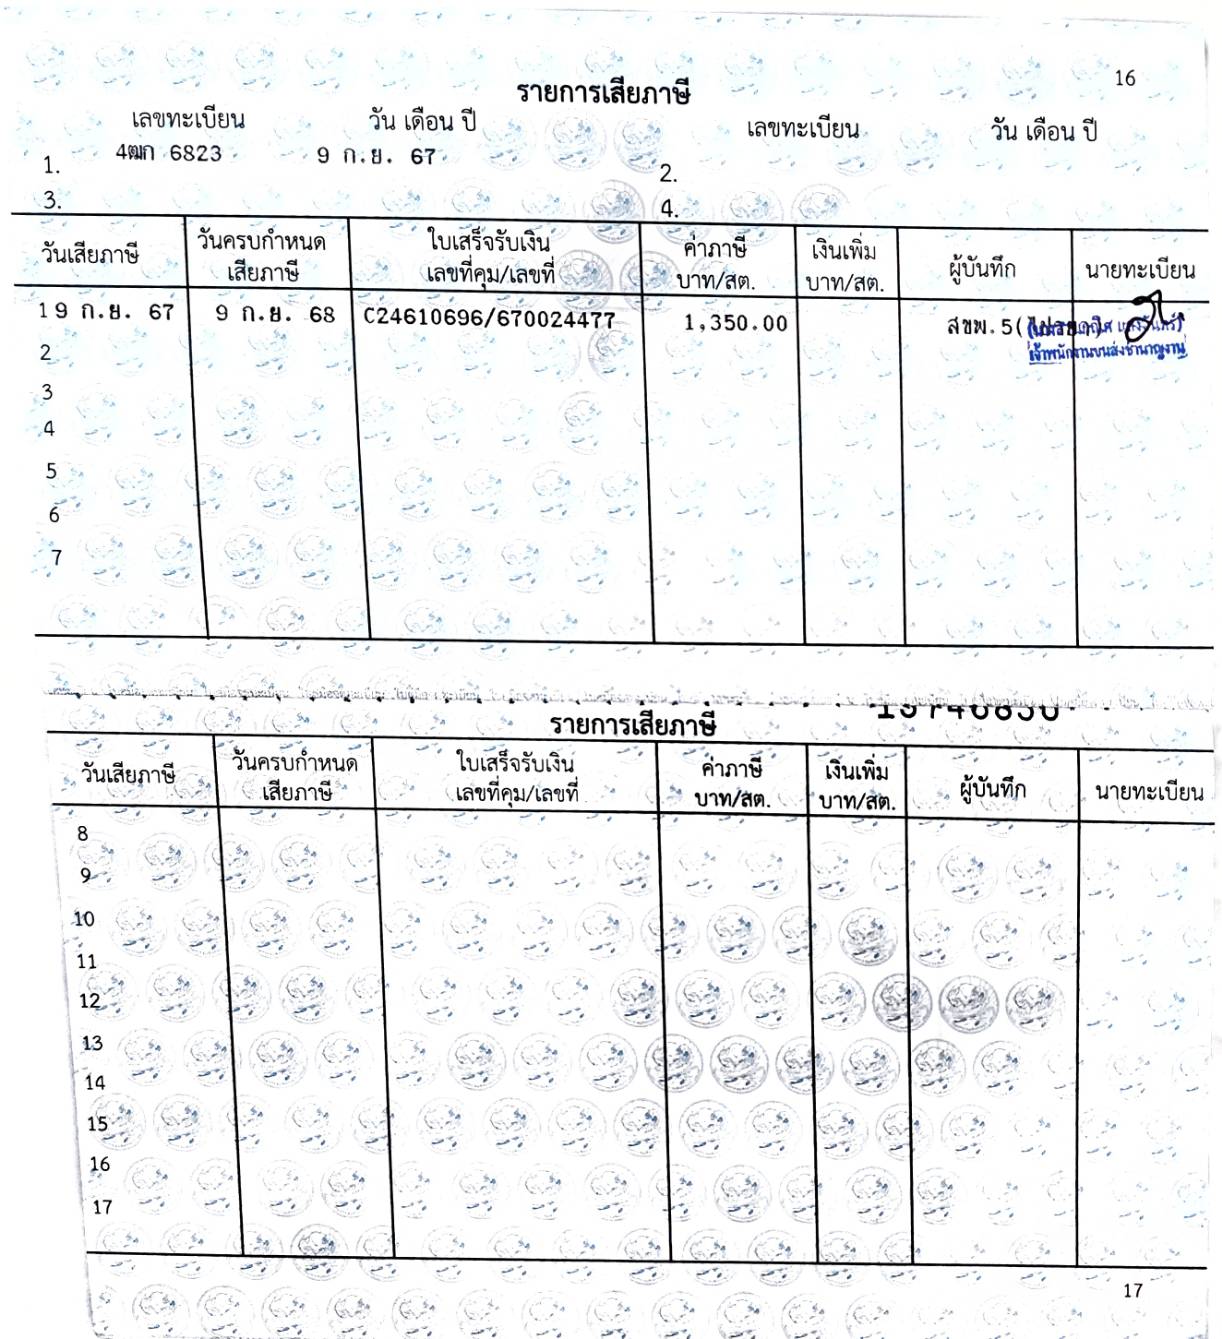 16
รายการเสียภาษี
เลขทะเบียน วัน เดือน ปี เลขทะเบียน วัน เดือน ปี
1. 4ฒก 6823 9 ก.ย. 67 2.
3. 4.
วันเสียภาษี วันครบกำหนด เสียภาษี ใบเสร็จรับเงิน เลขที่คุม/เลขที่ ค่าภาษี บาท/สต. เงินเพิ่ม บาท/สต. ผู้บันทึก นายทะเบียน
1 9 ก.ย. 67 9 ก.ย. 68 C24610696/670024477 1,350.00 สขพ.5(
เจ้าพนักงานขนส่งชำนาญงาน
2
3
4
5
6
7
รายการเสียภาษี
วันเสียภาษี วันครบกำหนด เสียภาษี ใบเสร็จรับเงิน เลขที่คุม/เลขที่ ค่าภาษี บาท/สต. เงินเพิ่ม บาท/สต. ผู้บันทึก นายทะเบียน
8
9
10
11
12
13
14
15
16
17
17